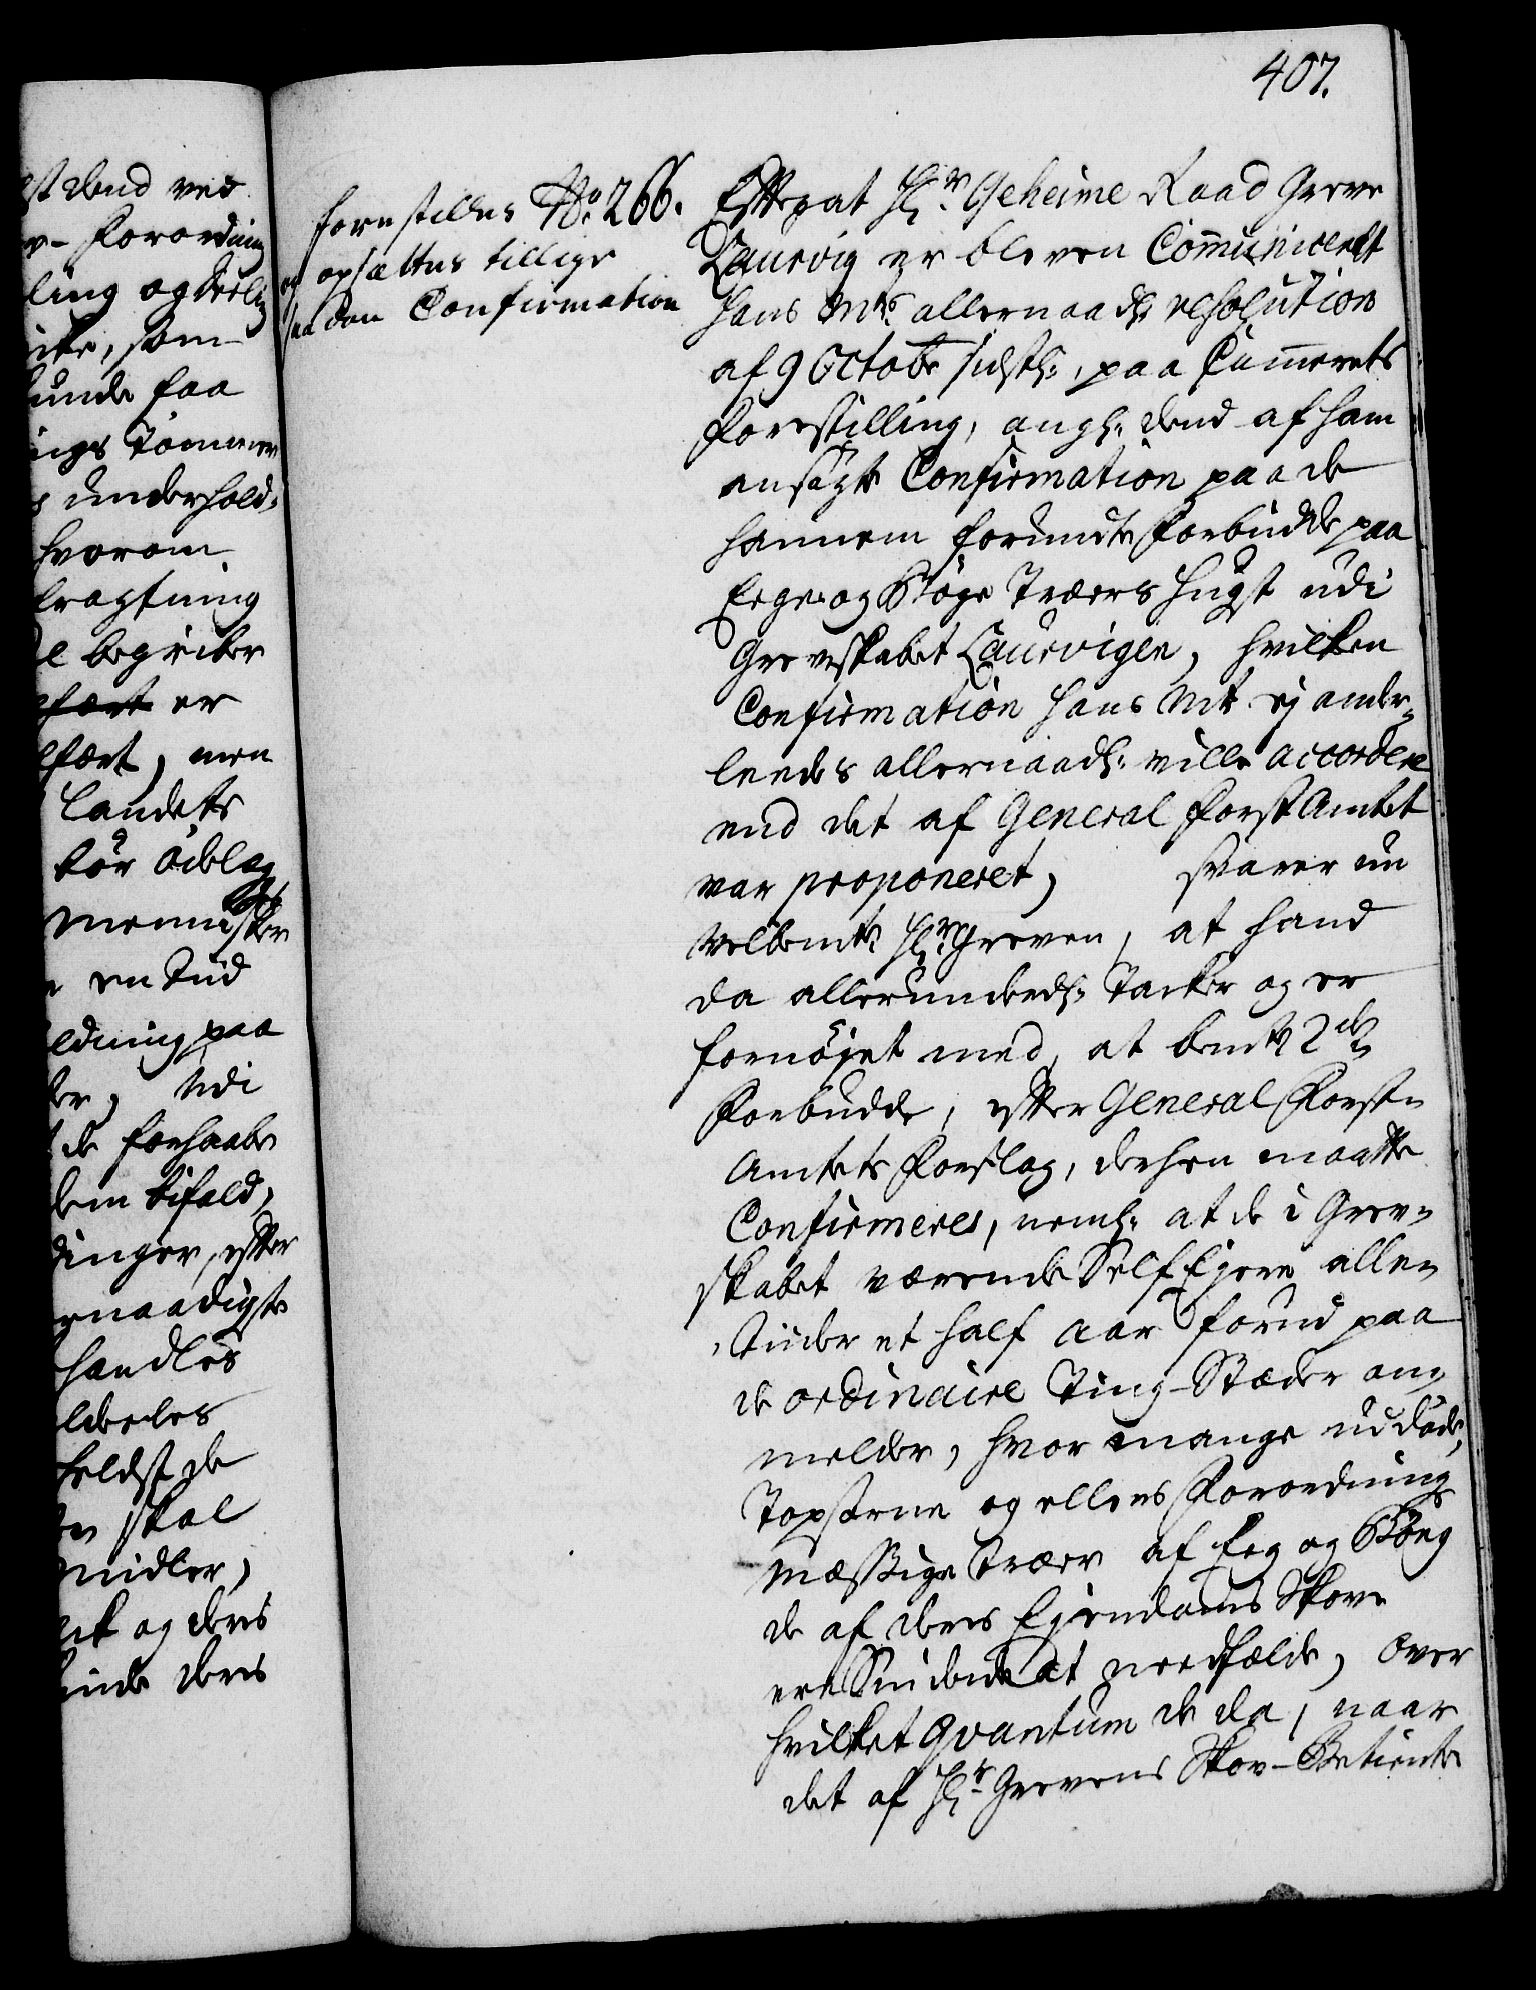 407.
st dend ved
v- Forordning
ling og
ike, som
kunde faa
ings Tømmer
s underhold-
hvorom
fragtning
l begriber
er
fært, men
Landets
tör ödelag
Mennisker
en Tiid
ldning paa
der, udi
de forhaaber
dem bifald,
dinger, efter
rnaadigste
handles
ldeeles
heldst de
en skal
midler,
elt og deris
inde deris
forestilles No. 266.
og opsættes tillige
saadan Confirmation
Efterat Hr. Geheime Raad Greve
Laurvig er bleven Communiceret
Hans Mts. allernaadl. resolution
af 9 Octobr sidstl., paa Cammerets
Forestilling, angl. dend af ham
ansøgte Confirmation paa de
hannem forundte Forbudde paa
Eege og Bøge Træers Hugst udi
Grevskabet Laurvigen, hvilken
Confirmation Hans Mt ej ander-
leedes allernaadl. ville accordere
end det af General Forst Amtet
var proponeret, svarer nu
Velbemte. Hr. Greven, at hand
da allerunderdl. Takker og er
fornøyet med, at bemte 2de
Forbudde, efter General Forst-
Amtets Forslag, derhen maatte
Confirmeres, neml. at de i Grev-
skabet værende Self Ejere alle-
Tiider et half aar forud paa
de ordinaire Ting-Stæder an-
melder, hvor mange uddøde,
Topførne og ellers Forordning
mæssige Træer af Eeg og Bøeg
de af deres Ejendoms Skove
ere Sindede at needfælde, over
hvilket Qvantum de da, naar
det af Hr. Grevens Skov-Betiente